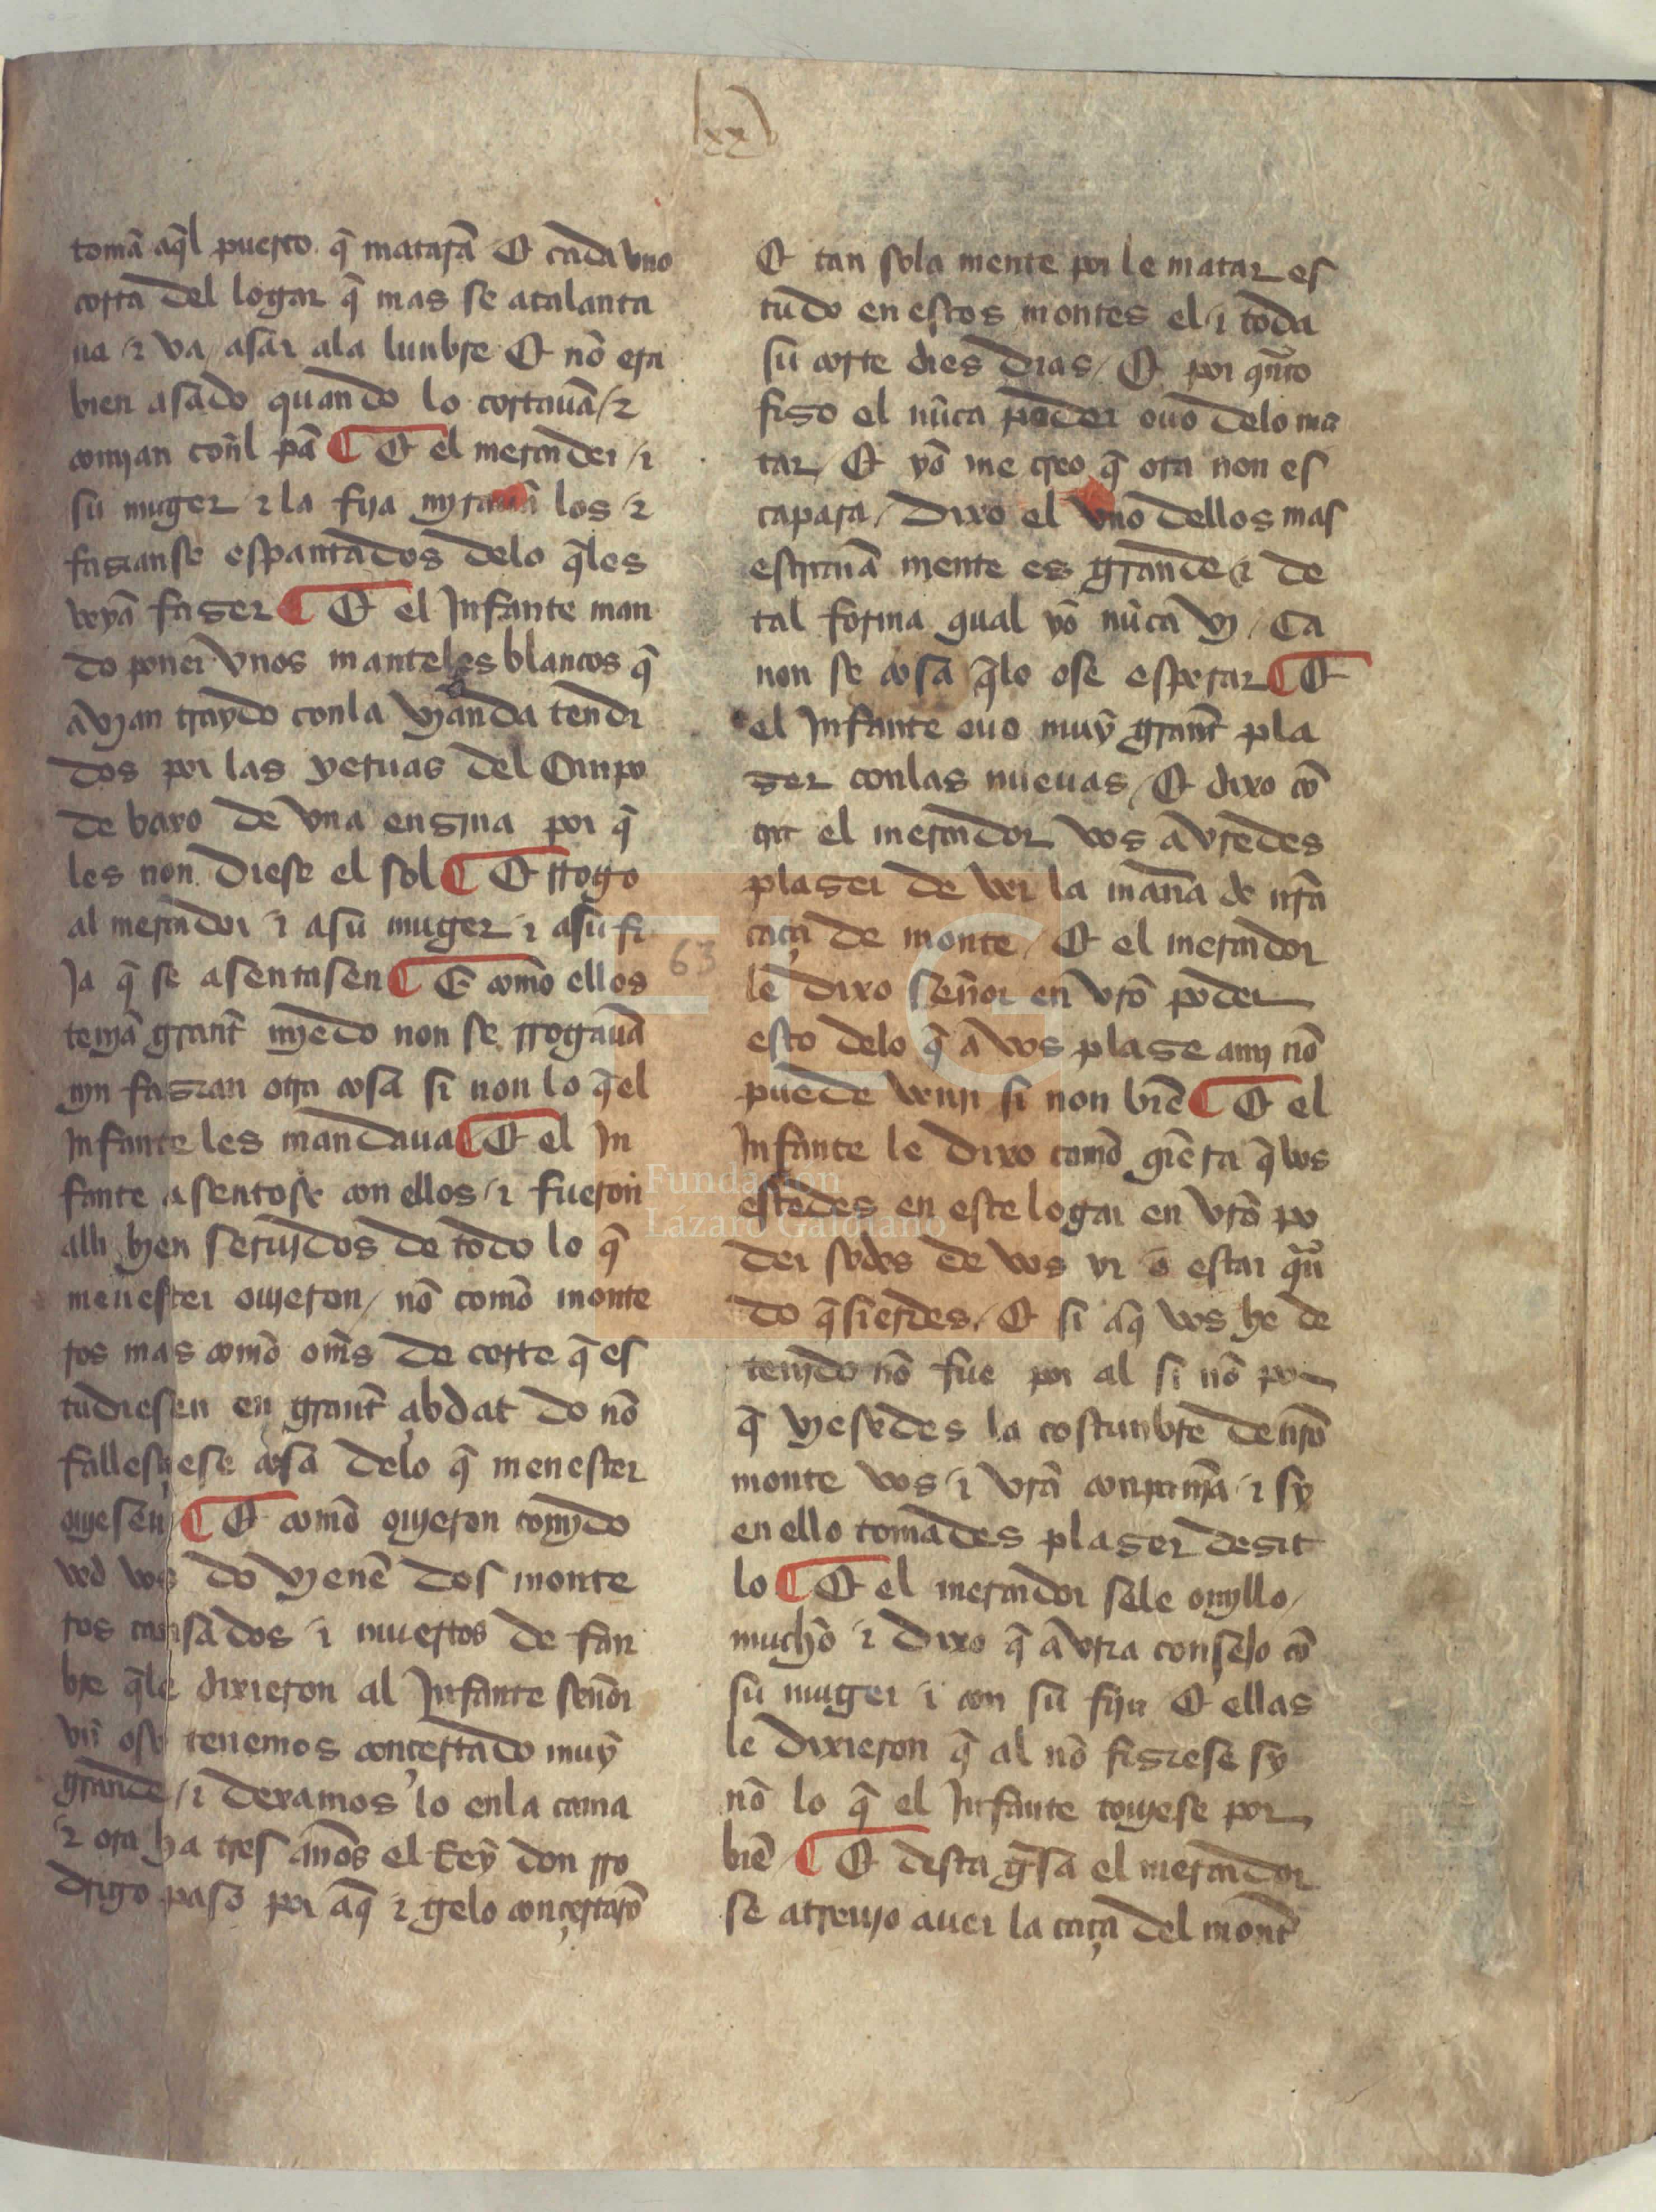 lxx
tomā aq̄l puerco q̄ matarā E cada vno
corta del logar q̄ mas se atalanta
ua / ⁊ va / asar ala lunbre E nō era
bien asado quando lo cortauā / ⁊
comjan conl̄ pā ¶ E el mercador / ⁊
su muger ⁊ la fija mjrauā los / ⁊
fazianse espantados delo q̄les
veyā faser ¶ E el Infante man
do poner vnos manteles blancos q̄
avjan traydo conla vjanda tendi
dos por las yeruas del Canpo
de baxo de vna enzina por q̄
les non diese el sol ¶ E rrogo
al mercador ⁊ a su muger ⁊ a su fi
ja q̄ se asentasen ¶ E como ellos
temjā grant mjedo non se rrogauā
njn fazian otra cosa si non lo q̄ el
Infante les mandaua ¶ E el In
fante asentose con ellos / ⁊ fueron
alli bjen serujdos de todo lo q̄
menester oujeron / nō como monte
ros mas como om̄s de corte q̄ es
tudiesen en grant çibdat do nō
fallesçiese cosa delo q̄ menester
oujesen ¶ E como oujeron comjdo
ved vos do vjenē dos monte
ros cansados ⁊ muertos de fan
bre q̄le dixieron al Infante señor
vn̄ oso tenemos conçertado muy
grande / ⁊ dexamos lo enla cama
⁊ ora ha tres años el Rey don rro
drigo paso por aq̄ ⁊ gelo conçertarō
E tan sola mente por le matar es
tudo en estos montes el ⁊ toda
su corte dies dias / E por qnto
fiso el nūca poder ouo delo ma
tar / E yo me creo q̄ ora non es
capara / dixo el vno dellos mas
estrana mente es grande ⁊ de
tal forma qual yo nūca vj / Ca
non se cosa q̄lo ose esperar ¶ E
el Infante ouo muy grant pla
ser conlas nueuas / E dixo cō
tra el mercador vos avredes
plaser de ver la mana de nr̄a
caça de monte / E el mercador
le dixo señor en vr̄o poder
esto delo q̄ a vos plase a mj nō
puede venjr si non biē ¶ E el
Infante le dixo como qēra q̄ vos
estedes en este logar en vr̄o po
der sodes de vos yr o estar quā
do q̄sierdes / E si aq̄ vos he de
tenjdo nō fue por al si nō por
q̄ vjesedes la costunbre de nr̄o
monte vos ⁊ vr̄a conpanja ⁊ sy
en ello tomades plaser desit
lo ¶ E el mercador sele omjllo /
mucho ⁊ dixo q̄ avria consejo cō
su muger ⁊ con su fija E ellas
le dixieron q̄ al nō fiziese sy
nō lo q̄ el Infante toujese por
biē ¶ E desta gsa el mercador
se atreujo a uer la caça del mont
63
FLG
Fundación
Lázaro Galdiano